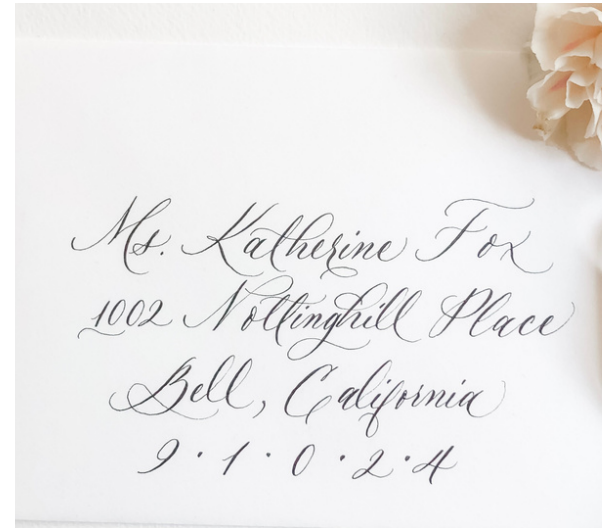 Ms. Katherine Fox
1002 Nottinghill Place
Bell, California
9·1·0·2·4